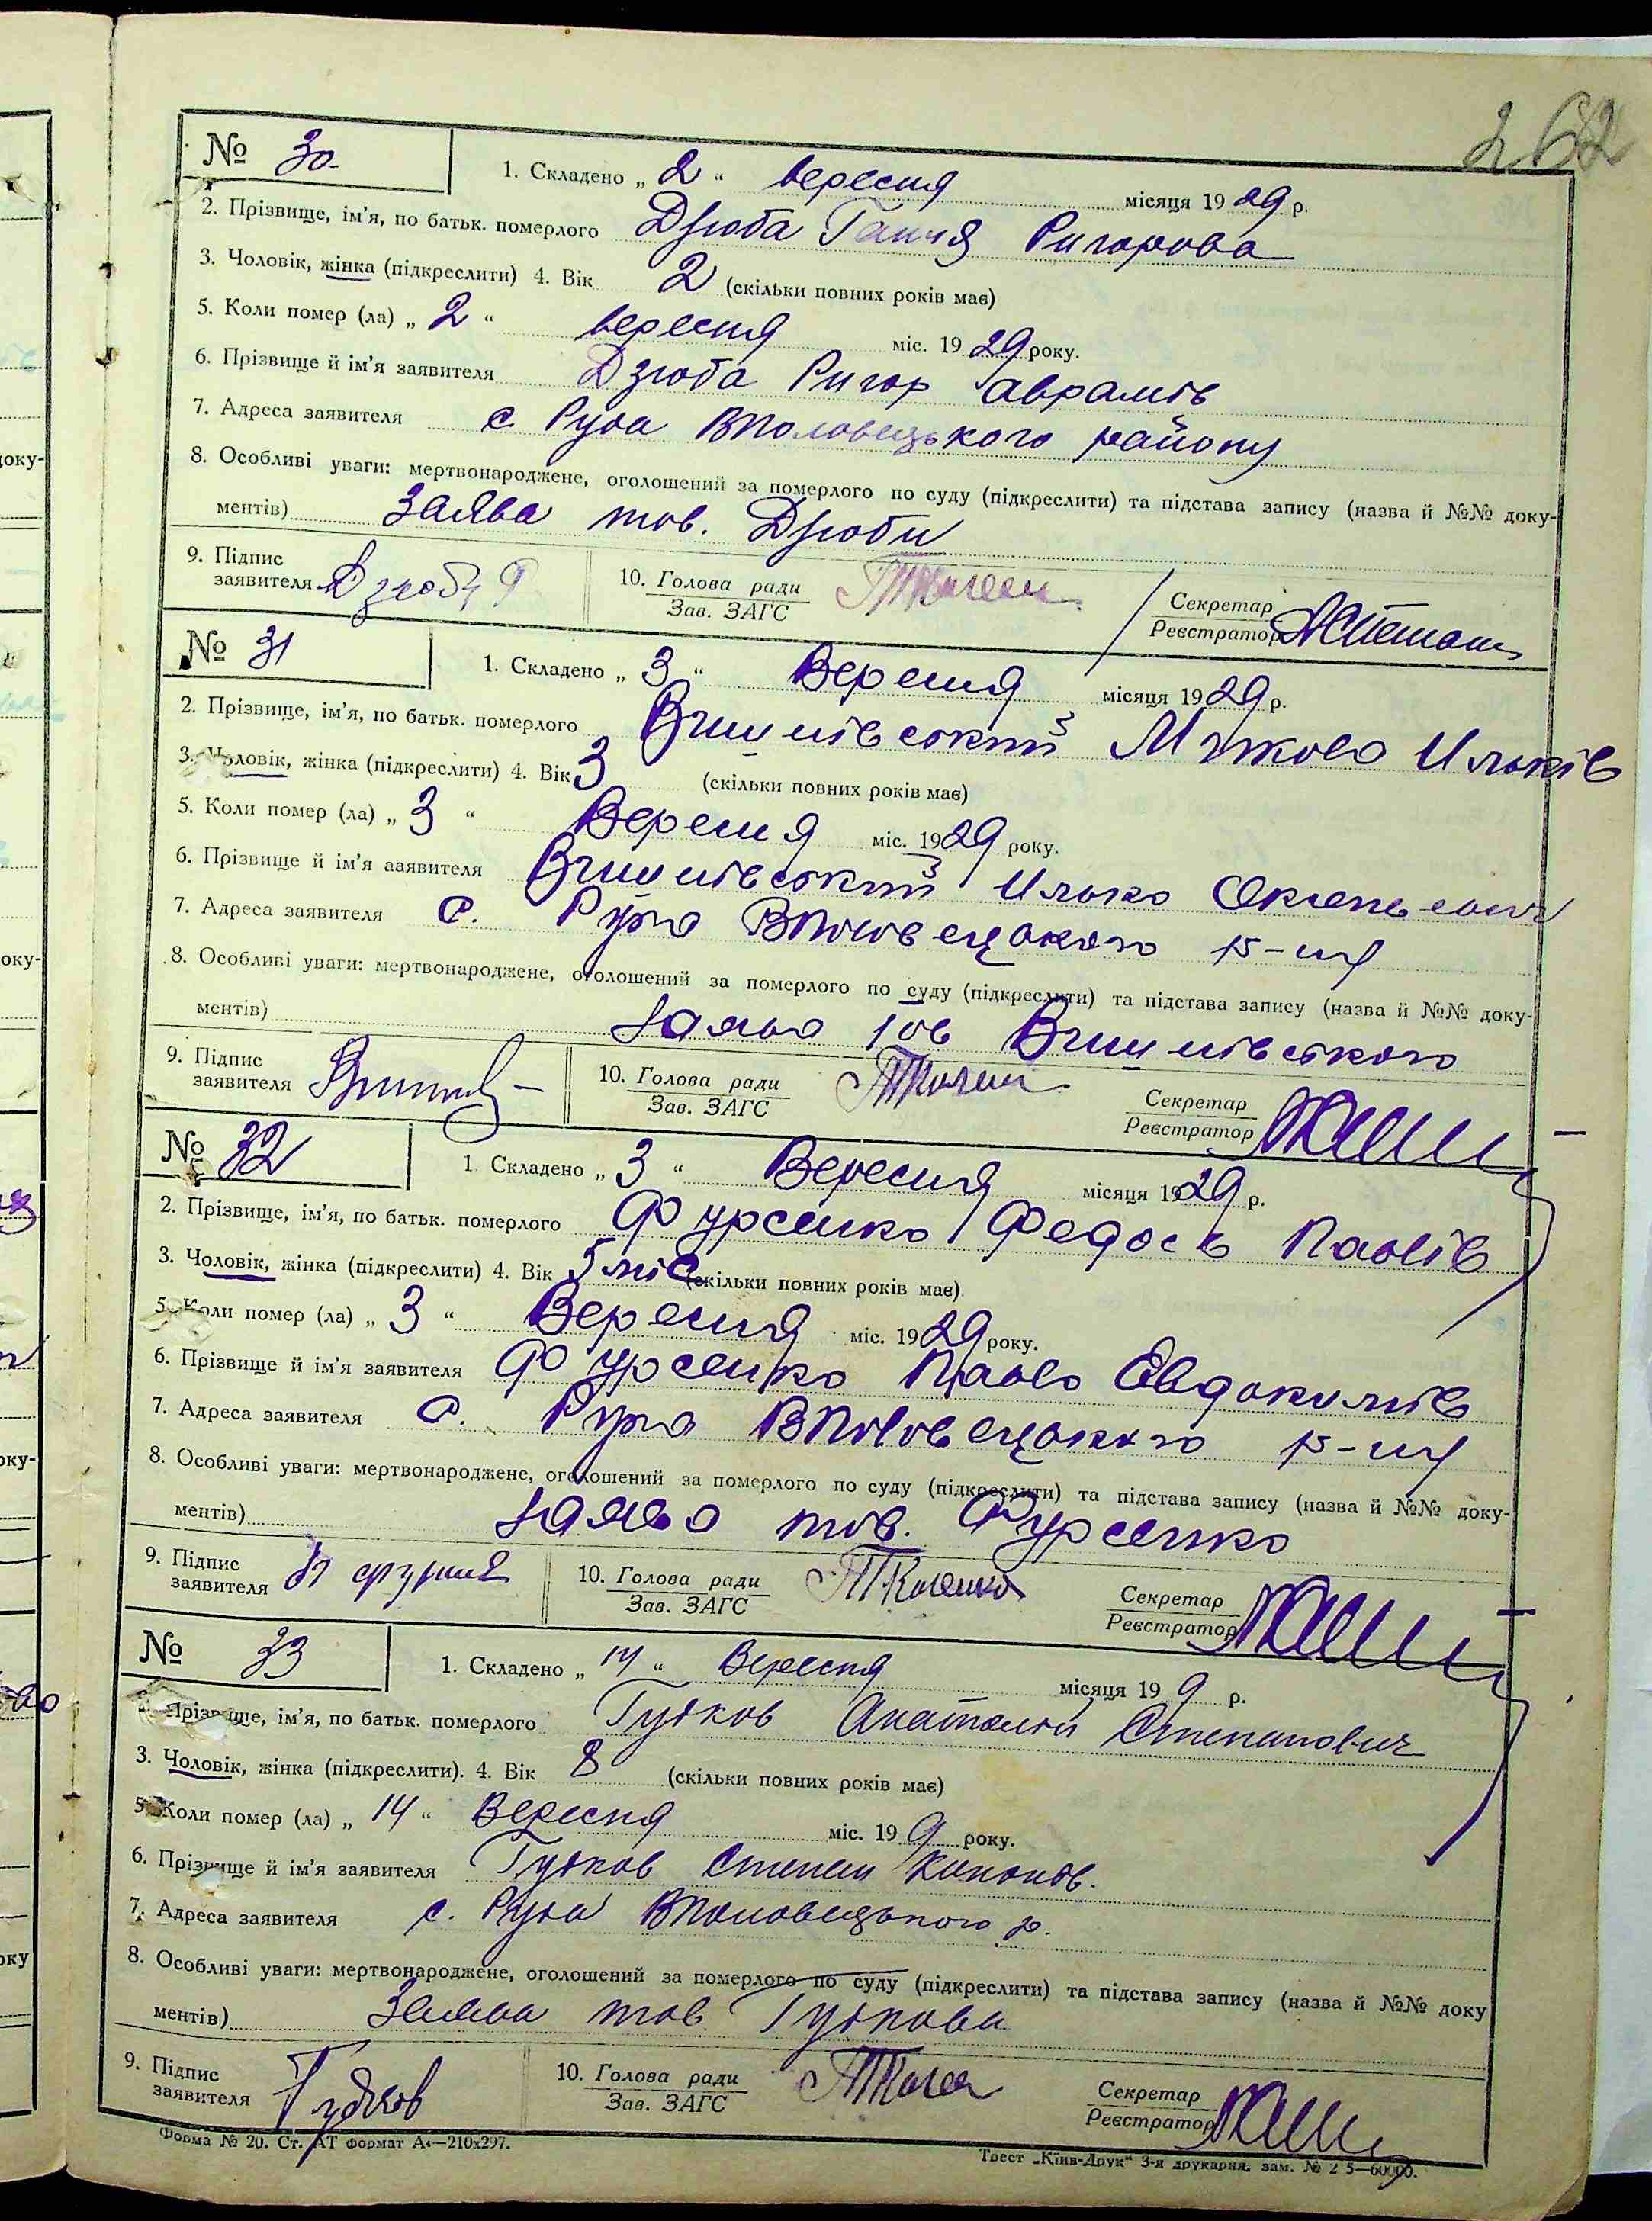 262
№ 30
1. Складено „ 2 “ вересня місяця 1929 р.
2. Прізвище, ім'я, по батьк. померлого Дзюба Гання Ригорова
3. Чоловік, жінка (підкреслити) 4. Вік 2 (скільки повних років має)
5. Коли помер (ла) „ 2 “ вересня міс. 1929 року.
6. Прізвище й ім'я заявителя Дзюба Ригор Аврамів
7. Адреса заявителя с Руда ВПоловецького району
8. Особливі уваги: мертвонароджене, оголошений за померлого по суду (підкреслити) та підстава запису (назва й №№ доку-
ментів) Заява тов. Дзюби
9. Підпис заявителя 10. Голова ради Секретар
Зав. ЗАГС Реєстратор
№ 31
1. Складено „ 3 “ Вересня місяця 1929 р.
2. Прізвище, ім'я, по батьк. померлого Вишнівський Микола Ильків
3. Чоловік, жінка (підкреслити) 4. Вік 3 (скільки повних років має)
5. Коли помер (ла) „ 3 “ Вересня міс. 1929 року.
6. Прізвище й ім'я аявителя Вишнівський Илько
7. Адреса заявителя с. Руда ВПоловецького р-ну
8. Особливі уваги: мертвонароджене, оголошений за померлого по суду (підкреслити) та підстава запису (назва й №№ доку-
ментів) Заява тов Вишнівського
9. Підпис заявителя 10. Голова ради Секретар
Зав. ЗАГС Реєстратор
№ 32
1. Складено „ 3 “ Вересня місяця 1929 р.
2. Прізвище, ім'я, по батьк. померлого Фурсенко Федось Павлів
3. Чоловік, жінка (підкреслити) 4. Вік 5 міс (скільки повних років має)
5. Коли помер (ла) „ 3 “ Вересня міс. 1929 року.
6. Прізвище й ім'я заявителя Фурсенко Павло Евдокимів
7. Адреса заявителя с. Руда ВПоловецького р-ну
8. Особливі уваги: мертвонароджене, оголошений за померлого по суду (підкреслити) та підстава запису (назва й №№ доку-
ментів) Заява тов. Фурсенко
9. Підпис заявителя 10. Голова ради Ткаченко Секретар
Зав. ЗАГС Реєстратор
№ 33
1. Складено „ 14 “ Вересня місяця 19 9 р.
2. Прізвище, ім'я, по батьк. померлого Гудков Анатолій Степанович
3. Чоловік, жінка (підкреслити). 4. Вік 8 (скільки повних років має)
5. Коли помер (ла) „ 14 “ Вересня міс. 19 9 року.
6. Прізвище й ім'я заявителя Гудков Степан Кононів.
7. Адреса заявителя с. Руда ВПоловецького р.
8. Особливі уваги: мертвонароджене, оголошений за померлого по суду (підкреслити) та підстава запису (назва й №№ доку
ментів) Заява тов Гудкова
9. Підпис заявителя Гудков 10. Голова ради Секретар
Зав. ЗАГС Реєстратор
Форма № 20. Ст. АТ формат А₄—210х297.
Трест „Київ-Друк“ 3-я друкарня, зам. № 2 5—60000.